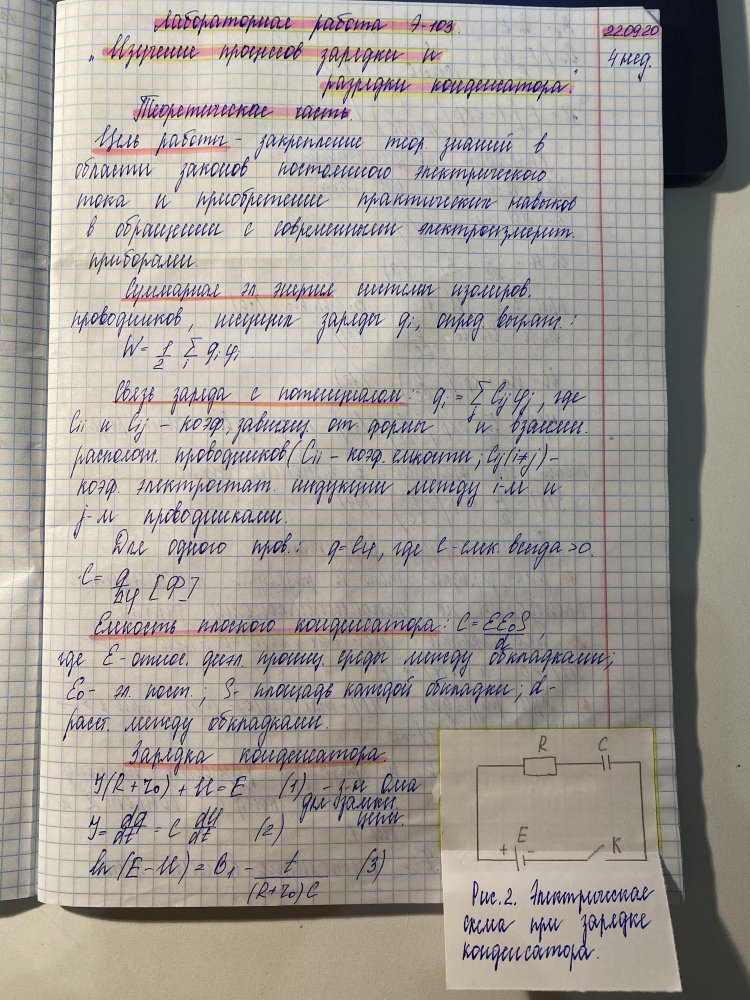 Лабораторная работа Э-103.
22.09.20
"Изучение процесов зарядки и
4 нед.
разрядки конденсатора."
Теоретическая часть.
Цель работы - закрепление теор. знаний в
области законов постоянного электрического
тока и приобретение практических навыков
в обращении с современными электроизмерит.
приборами.
Суммарная эл. энергия системы изолиров.
проводников, несущих заряды qi, опред. выраж.:
W = 1/2 ∑i qiφi.
Связь заряда с потенциалом: qi = ∑j Cijφj, где
Cii и Cij - коэф, завис. от формы и взаимн.
располож. проводников (Cii - коэф. емкости; Cij (i≠j) -
коэф. электростат. индукции между i-м и
j-м проводниками.
Для одного пров.: q=Cφ, где C - емк. всегда >0.
C = q/Δφ [Ф]
Емкость плоского конденсатора: C = EE₀S/d,
где E - относ. диэл. прониц. среды между обкладками;
E₀ - эл. пост.; S - площадь каждой обкладки; d -
расст. между обкладками.
Зарядка конденсатора.
I(R+r₀) + U = E (1) - з-н Ома
для замкн.
цепи.
I = dq/dt = C dU/dt (2)
ln (E-U) = B₁ - t/(R+r₀)C (3)
R C
+ E - K
Рис. 2. Электрическая
схема при зарядке
конденсатора.